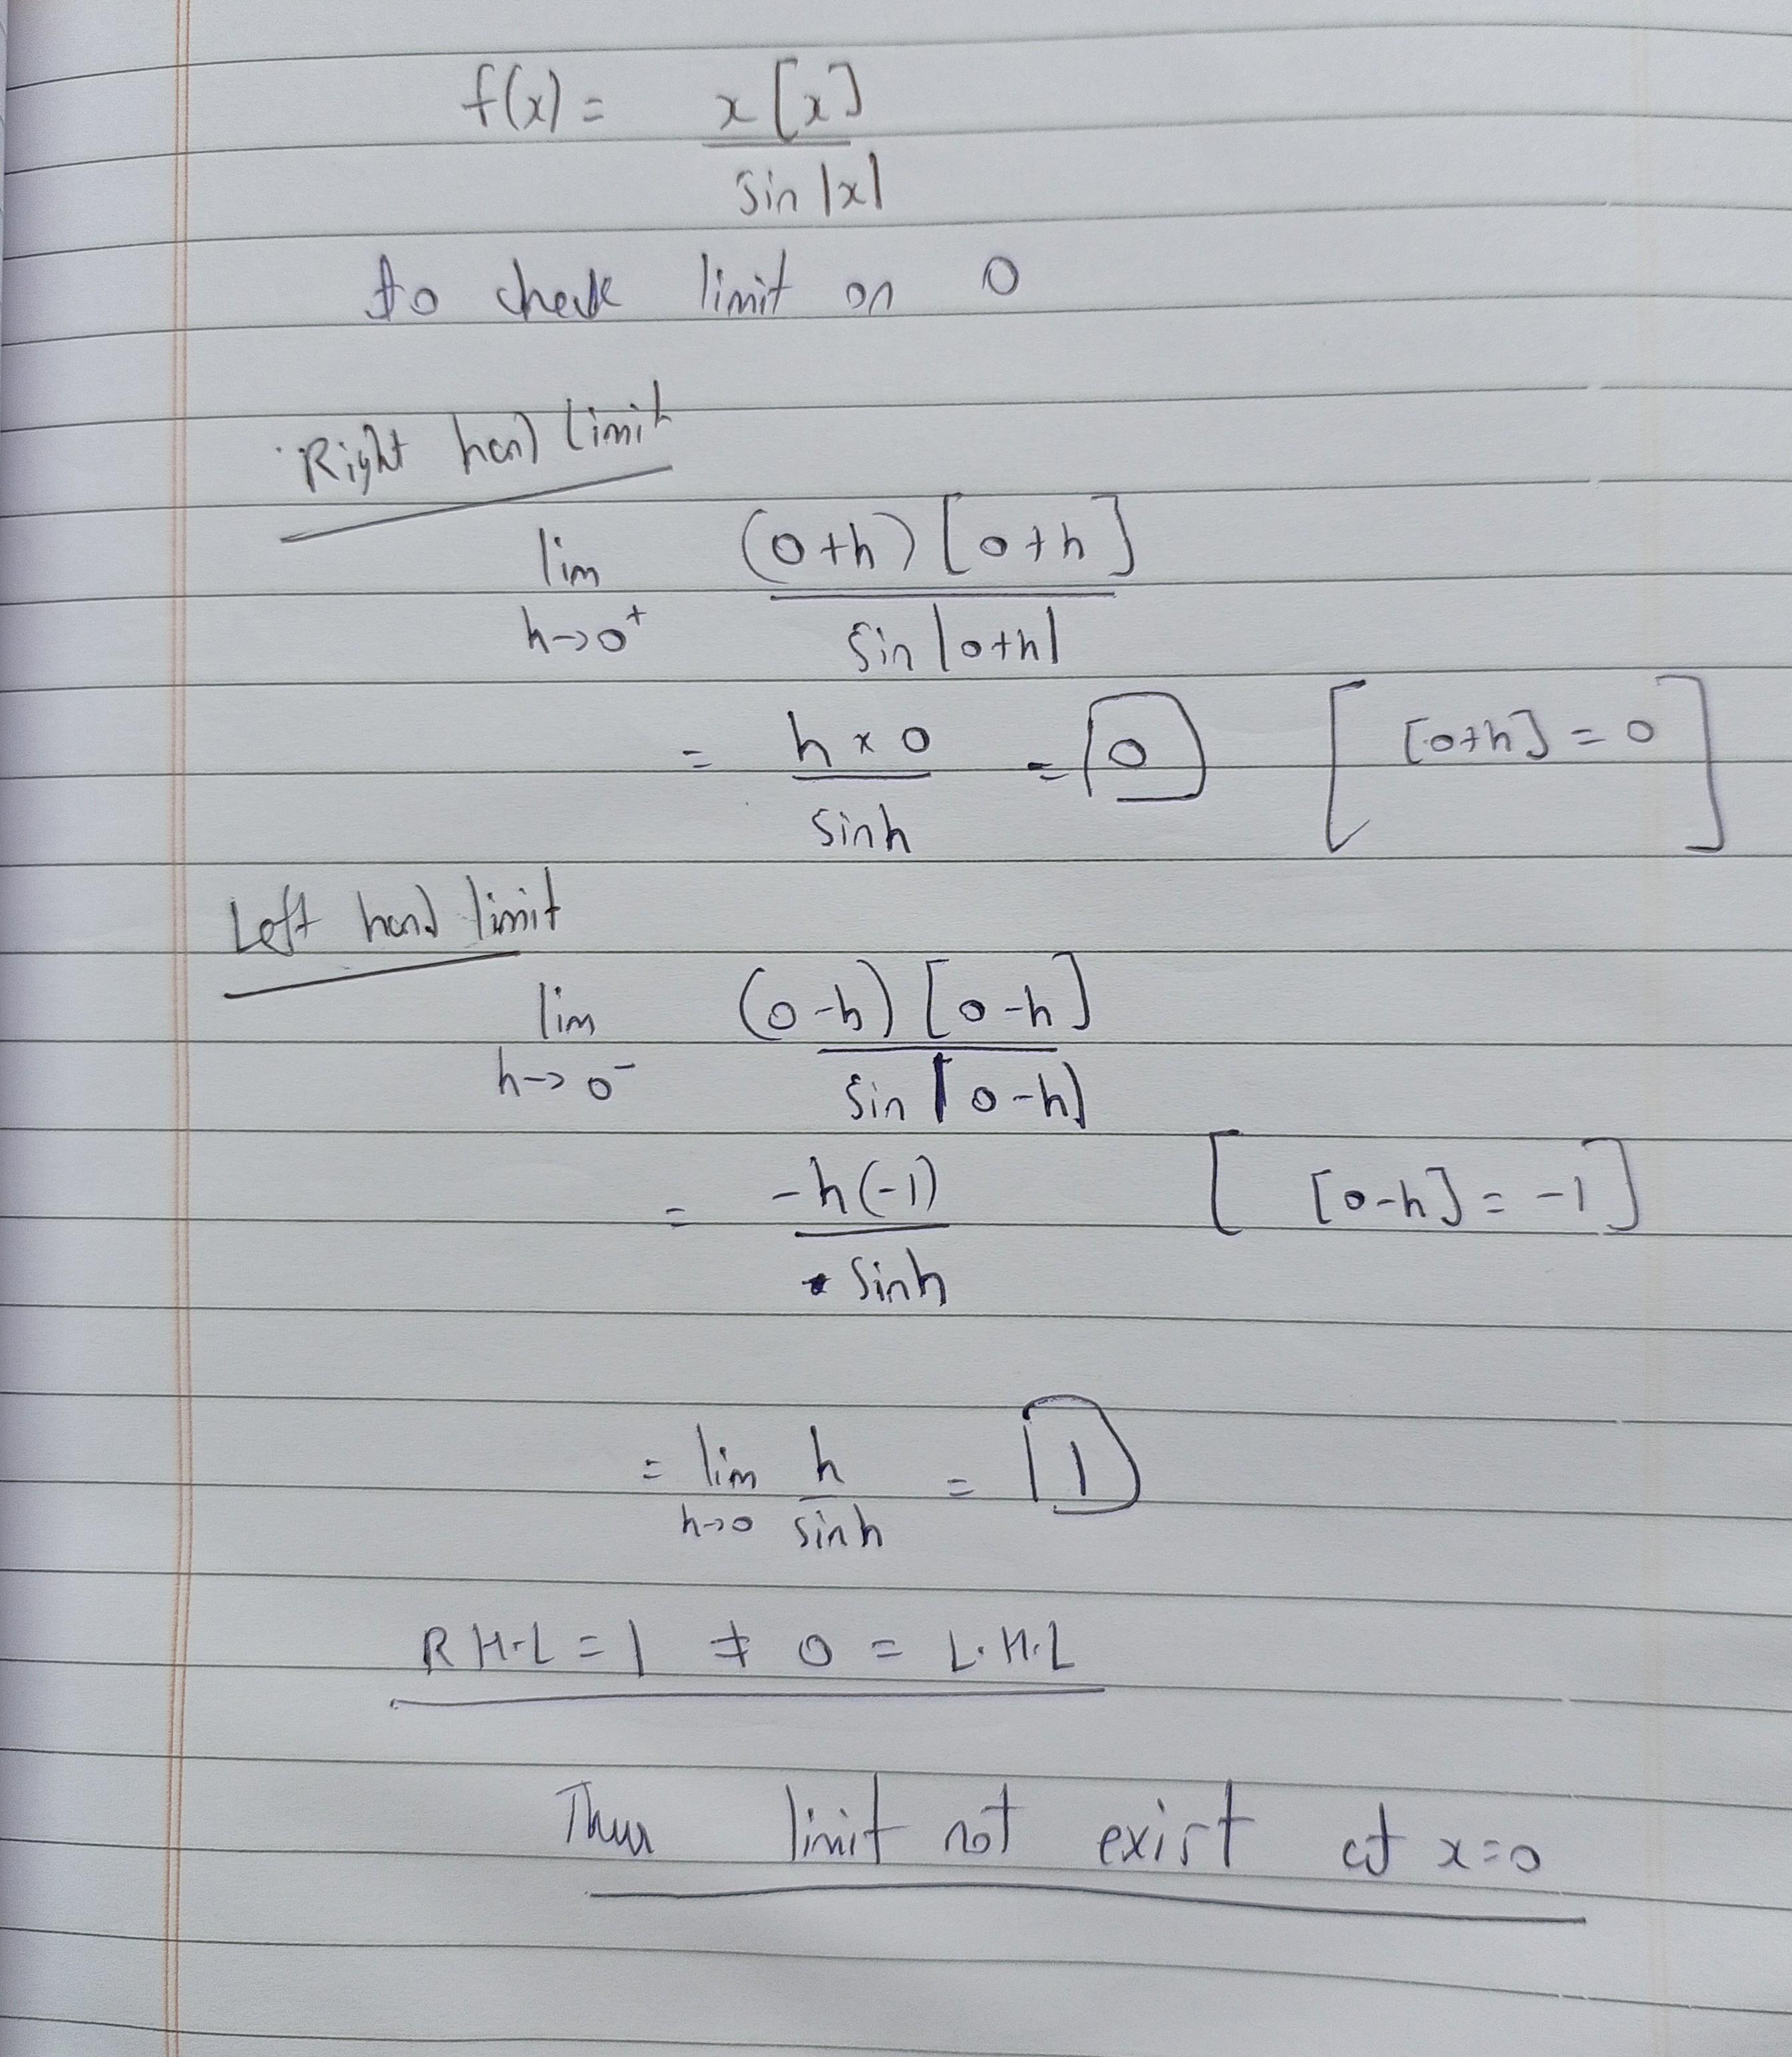 f(x) = x[x]
sin|x|
to check limit on 0
Right hand limit
lim (0+h)[0+h]
h→0⁺ sin|0+h|
= h×0 = 0 [ [0+h] = 0 ]
sinh
Left hand limit
lim (0-h)[0-h]
h→0⁻ sin|0-h|
= -h(-1) [ [0-h] = -1 ]
sinh
= lim h = 1
h→0 sinh
RH.L = 1 ≠ 0 = L.H.L
Thus limit not exist at x=0